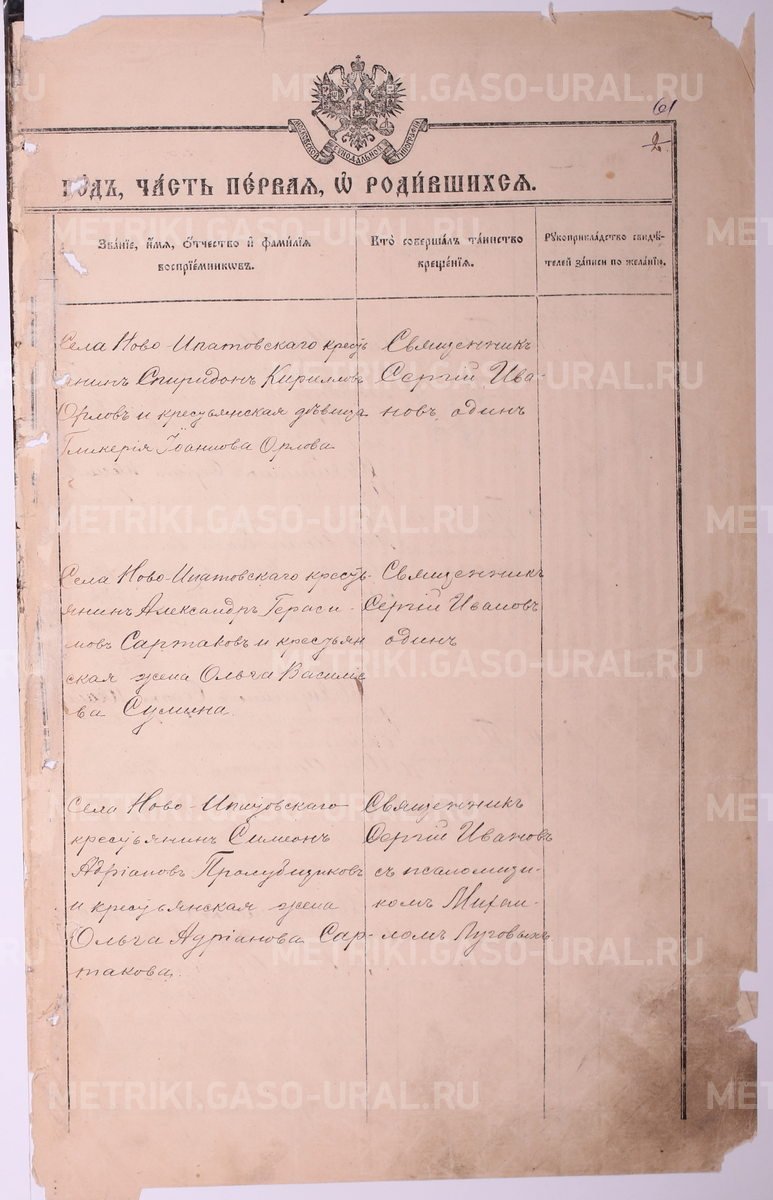 61
2
МОСКОВСКОЙ СУНОДАЛЬНОЙ ТИПОГРАФІИ
ГОДЪ, ЧАСТЬ ПЕРВАЯ, Ѡ РОДИВШИХСЯ.
Званіе, имя, отчество и фамилія
воспріемниковъ.
Кто совершалъ таинство
крещенія.
Рукоприкладство свидѣ-
телей записи по желанію.
Села Ново-Ипатовскаго кресть
янинъ Спиридонъ Кириловъ
Орловъ и крестьянская дѣвица
Гликерія Іоаннова Орлова
Священникъ
Сергій Ива-
новъ один
Села Ново-Ипатовскаго кресть-
янинъ Александръ Гераси-
мовъ Сартаковъ и крестьян
ская жена Ольга Василье
ва Сумина
Священникъ
Сергій Ивановъ
одинъ
Села Ново-Ипатовскаго
крестьянинъ Симеонъ
Адріановъ Пролубщиковъ
и крестьянская жена
Ольга Адріанова Сар-
такова.
Священникъ
Сергій Ивановъ
съ псаломщи-
комъ Михаи-
ломъ Луговыхъ
METRIKI.GASO-URAL.RU